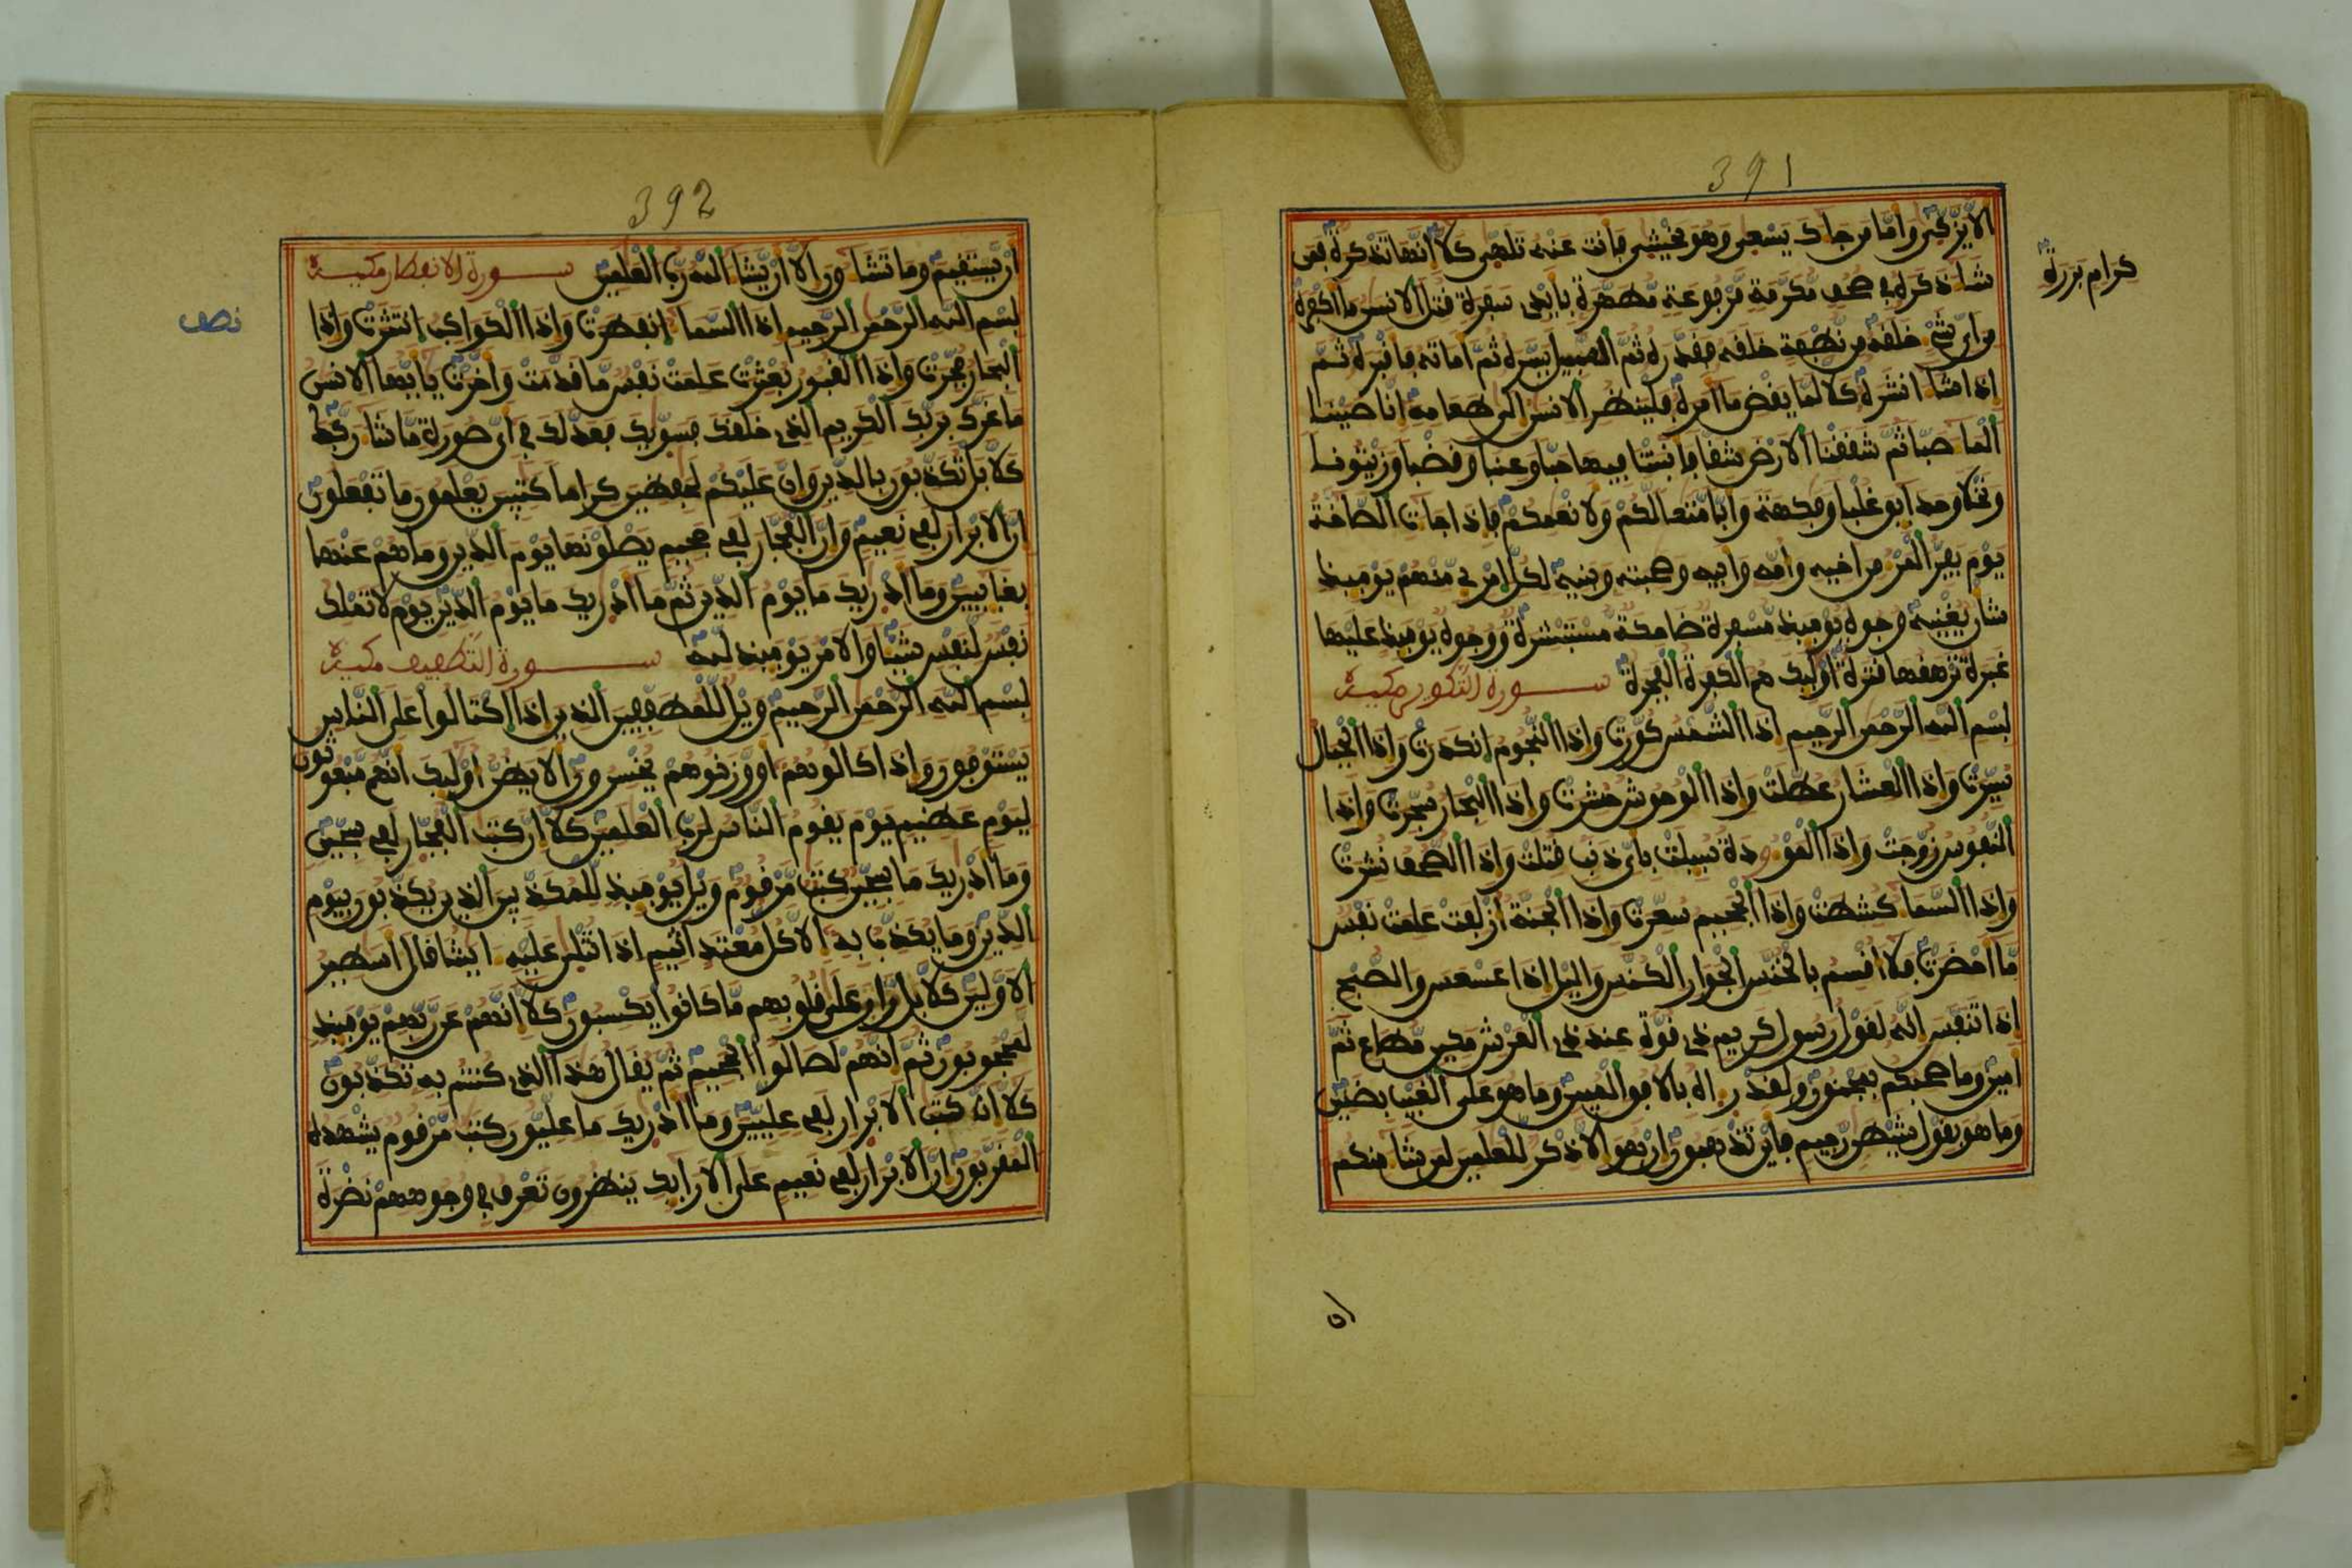 391
الا يزكى واما من جاك يسعى وهو يخشى فانت عنه تلهى كلا انها تذكرة فمن
كرام بررة
شا ذكره في صحف مكرمة مرفوعة مطهرة بايدى سفرة قتل الانسن ما اكفره
من اى شىء خلقه من نطفة خلقه فقدره ثم السبيل يسره ثم اماته فاقبره ثم
اذا شا انشره كلا لما يقض ما امره فلينظر الانسن الى طعامه انا صببنا
الما صبا ثم شققنا الارض شقا فانبتنا فيها حبا وعنبا وقضبا وزيتونا
ونخلا وحدايق غلبا وفكهة وابا متعا لكم ولانعمكم فاذا جات الصاخة
يوم يفر المر من اخيه وامه وابيه وصحبته وبنيه لكل امرى منهم يوميذ
شان يغنيه وجوه يوميذ مسفرة ضاحكة مستبشرة ووجوه يوميذ عليها
غبرة ترهقها قترة اوليك هم الكفرة الفجرة سورة التكوير مكية
بسم الله الرحمن الرحيم اذا الشمس كورت واذا النجوم انكدرت واذا الجبال
سيرت واذا العشار عطلت واذا الوحوش حشرت واذا البحار سجرت واذا
النفوس زوجت واذا الموودة سيلت باى ذنب قتلت واذا الصحف نشرت
واذا السما كشطت واذا الجحيم سعرت واذا الجنة ازلفت علمت نفس
ما احضرت فلا اقسم بالخنس الجوار الكنس واليل اذا عسعس والصبح
اذا تنفس انه لقول رسول كريم ذى قوة عند ذى العرش مكين مطاع ثم
امين وما صحبكم بمجنون ولقد راه بالافق المبين وما هو على الغيب بضنين
وما هو بقول شيطن رجيم فاين تذهبون ان هو الا ذكر للعلمين لمن شا منكم
ان
392
ان يستقيم وما تشاون الا ان يشا الله رب العلمين سورة الانفطار مكية
بسم الله الرحمن الرحيم اذا السما انفطرت واذا الكواكب انتثرت واذا
نصف
البحار فجرت واذا القبور بعثرت علمت نفس ما قدمت واخرت يايها الانسن
ما غرك بربك الكريم الذى خلقك فسويك فعدلك في اى صورة ما شا ركبك
كلا بل تكذبون بالدين وان عليكم لحفظين كراما كتبين يعلمون ما تفعلون
ان الابرار لفى نعيم وان الفجار لفى جحيم يصلونها يوم الدين وما هم عنها
بغايبين وما ادريك ما يوم الدين ثم ما ادريك ما يوم الدين يوم لا تملك
نفس لنفس شيا والامر يوميذ لله سورة التطفيف مكية
بسم الله الرحمن الرحيم ويل للمطففين الذين اذا اكتالوا على الناس
يستوفون واذا كالوهم او وزنوهم يخسرون الا يظن اوليك انهم مبعوثون
ليوم عظيم يوم يقوم الناس لرب العلمين كلا ان كتب الفجار لفى سجين
وما ادريك ما سجين كتب مرقوم ويل يوميذ للمكذبين الذين يكذبون بيوم
الدين وما يكذب به الا كل معتد اثيم اذا تتلى عليه ايتنا قال اسطير
الاولين كلا بل ران على قلوبهم ما كانوا يكسبون كلا انهم عن ربهم يوميذ
لمحجوبون ثم انهم لصالوا الجحيم ثم يقال هذا الذى كنتم به تكذبون
كلا ان كتب الابرار لفى عليين وما ادريك ما عليون كتب مرقوم يشهده
المقربون ان الابرار لفى نعيم على الارايك ينظرون تعرف في وجوههم نضرة